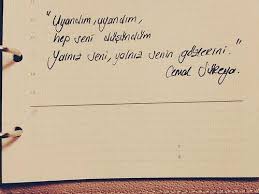 "Uyandım, uyandım,
hep seni düşündüm
Yalnız seni, yalnız senin gözlerini."
Cemal Süreya.